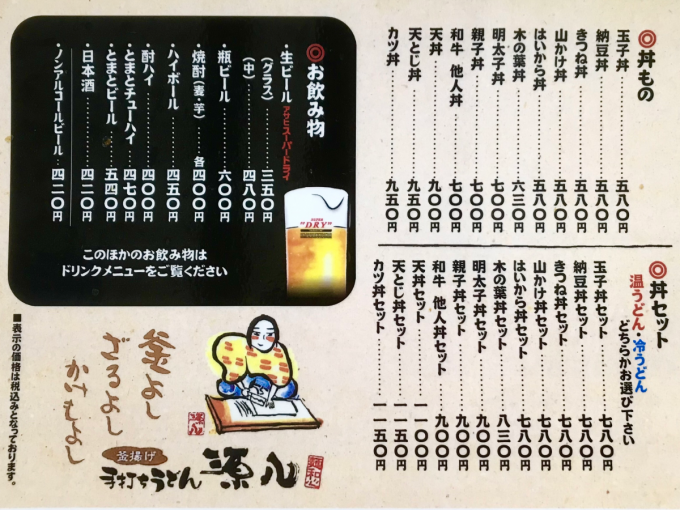 ◎丼もの
玉子丼…………五八〇円
納豆丼…………五八〇円
きつね丼…………五八〇円
山かけ丼…………五八〇円
はいから丼…………五八〇円
木の葉丼…………六三〇円
明太子丼…………七〇〇円
親子丼…………七〇〇円
和牛 他人丼…………七〇〇円
天丼…………九〇〇円
天とじ丼…………九五〇円
カツ丼…………九五〇円
◎丼セット
温うどん・冷うどん
どちらかお選び下さい
玉子丼セット…………七八〇円
納豆丼セット…………七八〇円
きつね丼セット…………七八〇円
山かけ丼セット…………七八〇円
はいから丼セット…………七八〇円
木の葉丼セット…………八三〇円
明太子丼セット…………九〇〇円
親子丼セット…………九〇〇円
和牛 他人丼セット…………九〇〇円
天丼セット…………一一〇〇円
天とじ丼セット…………一一五〇円
カツ丼セット…………一一五〇円
◎お飲み物
・生ビール アサヒスーパードライ
(グラス)…………三五〇円
(中)…………四八〇円
・瓶ビール…………六〇〇円
・焼酎(麦・芋)…………各四〇〇円
・ハイボール…………四五〇円
・酎ハイ…………四〇〇円
・とまとチューハイ…四七〇円
・とまとビール…………五四〇円
・日本酒…………四二〇円
・ノンアルコールビール…四二〇円
SUPER
"DRY"
このほかのお飲み物は
ドリンクメニューをご覧ください
釜よし
ざるよし
かけもよし
釜揚げ
手打ちうどん 源八
■表示の価格は税込みとなっております。